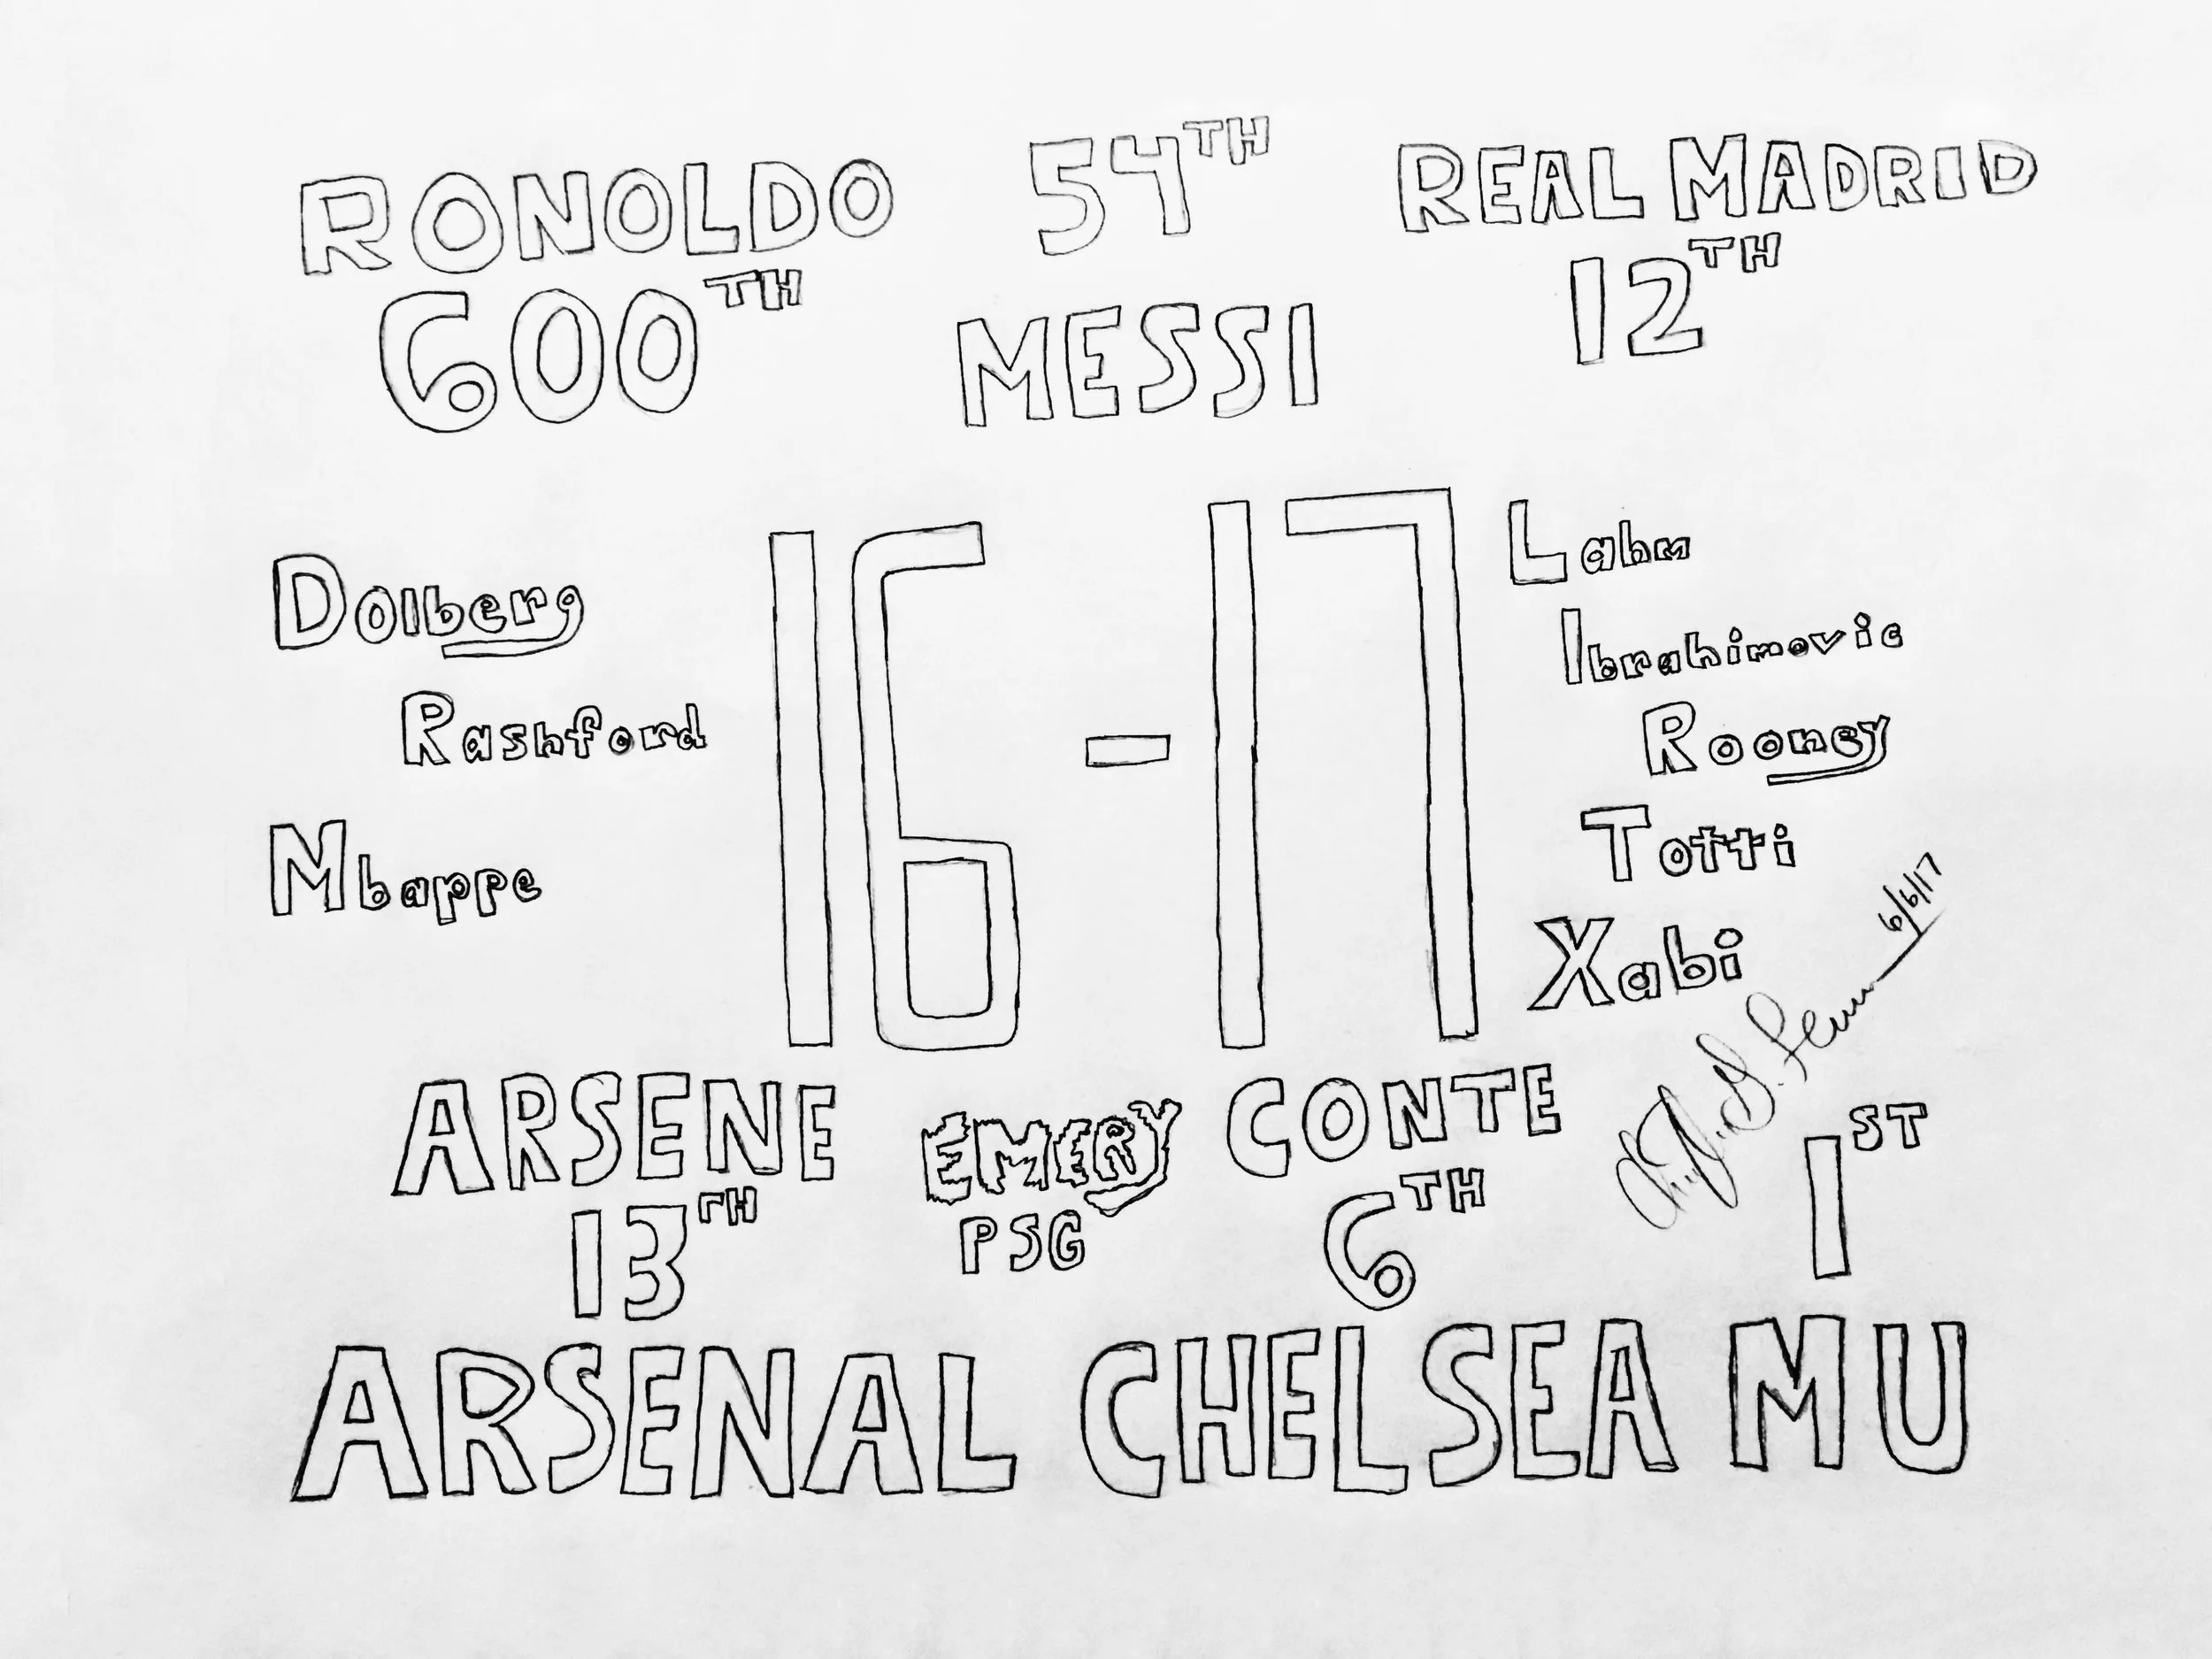 RONOLDO
600TH
54TH
MESSI
REAL MADRID
12TH
Dolberg
Rashford
Mbappe
16-17
Lahm
Ibrahimovic
Rooney
Totti
Xabi
6/6/17
ARSENE
13TH
EMERY
PSG
CONTE
6TH
1ST
ARSENAL CHELSEA MU